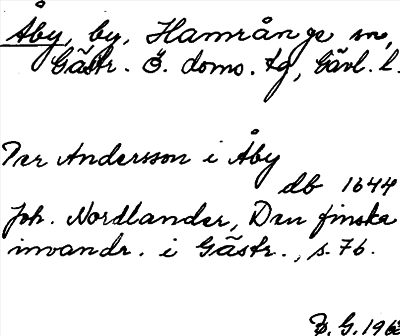 Åby, by, Hamrånge sn,
Gästr. Ö. doms. tg, Gävl. l.
Per Andersson i Åby
db 1644
Joh. Nordlander, Den finska
invandr. i Gästr., s. 76.
G. 196